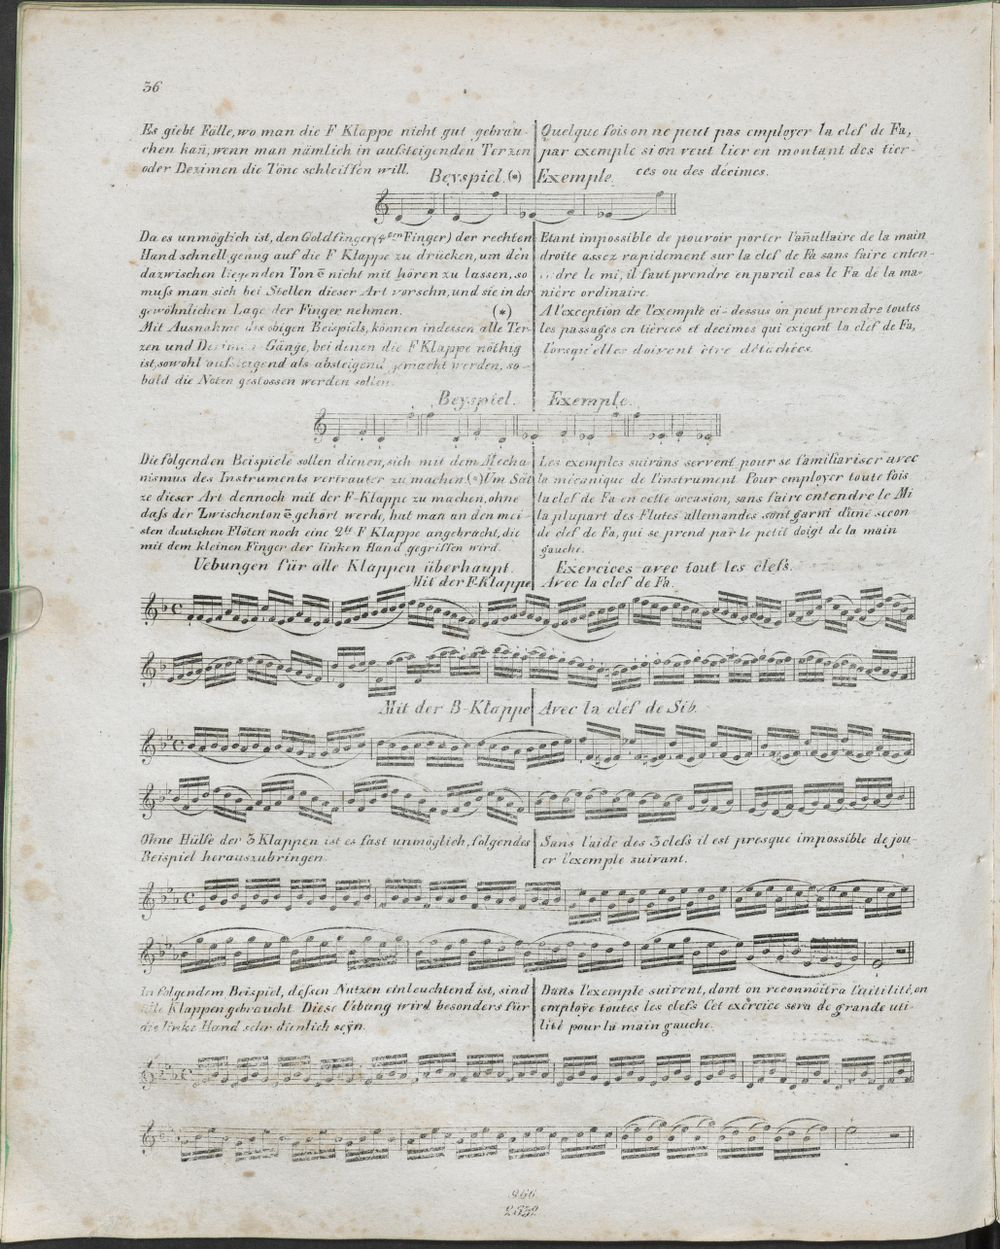 36
Es giebt Fälle, wo man die F Klappe nicht gut gebrau-
chen kañ, wenn man nämlich in aufsteigenden Terzen
oder Dezimen die Töne schleiffen will.
Beyspiel. (*)
Quelque fois on ne peut pas employer la clef de Fa,
par exemple si on veut lier en montant des tier-
ces ou des décimes.
Exemple.
Da es unmöglich ist, den Goldfinger (4ten Finger) der rechten
Hand schnell genug auf die F Klappe zu drücken, um den
dazwischen liegenden Ton e̅ nicht mit hören zu lassen, so
muſs man sich bei Stellen dieser Art vorsehn, und sie in der
gewöhnlichen Lage der Finger nehmen. (*)
Mit Ausnahme des obigen Beispiels, können indessen alle Ter-
zen und Dezimen Gänge, bei denen die F Klappe nöthig
ist, sowohl aufsteigend als absteigend gemacht werden, so-
bald die Noten gestossen werden sollen.
Etant impossible de pouvoir porter l'añullaire de la main
droite assez rapidement sur la clef de Fa sans faire enten-
dre le mi, il faut prendre en pareil cas le Fa de la ma-
nière ordinaire.
A l'exception de l'exemple ci-dessus on peut prendre toutes
les passages en tièrces et decimes qui exigent la clef de Fa,
lorsqu'elles doivent être détachées.
Beyspiel.
Exemple.
Die folgenden Beispiele sollen dienen, sich mit dem Mecha-
nismus des Instruments vertrauter zu machen. (*) Um Sät-
ze dieser Art dennoch mit der F-Klappe zu machen, ohne
daſs der Zwischenton e̅ gehört werde, hat man an den mei-
sten deutschen Flöten noch eine 2te F Klappe angebracht, die
mit dem kleinen Finger der linken Hand gegriffen wird.
Les exemples suivans servent pour se familiariser avec
la mécanique de l'instrument. Pour employer toute fois
la clef de Fa en cette occasion, sans faire entendre le Mi
la plupart des Flutes allemandes sont garni d'une secon-
de clef de Fa, qui se prend par le petit doigt de la main
gauche.
Uebungen für alle Klappen überhaupt.
Exercices avec tout les clefs.
Mit der F-Klappe
Avec la clef de Fa.
Mit der B-Klappe
Avec la clef de Sib.
Ohne Hülfe der 3 Klappen ist es fast unmöglich, folgendes
Beispiel herauszubringen.
Sans l'aide des 3 clefs il est presque impossible de jou-
er l'exemple suivant.
In folgendem Beispiel, dessen Nutzen einleuchtend ist, sind
alle Klappen gebraucht. Diese Uebung wird besonders für
die linke Hand sehr dienlich seÿn.
Dans l'exemple suivent, dont on reconnoitra l'utilité, on
employe toutes les clefs Cet exercice sera de grande uti-
lité pour la main gauche.